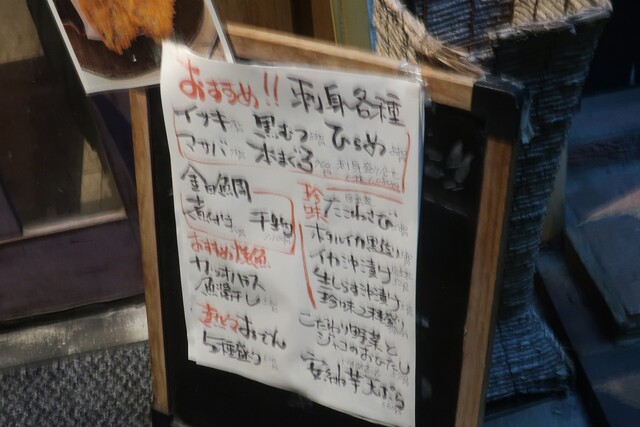 おすすめ!! 刺身各種
イサキ 黒むつ ひらめ
マサバ 本まぐろ 刺身盛り合せ
金目鯛
煮付け 干物
おすすめ焼魚
カットハラス
魚醤干し
おでん
5種盛り
珍味 たこわさび
ホタルイカ黒造り
イカ沖漬け
生しらす沖漬け
珍味2種盛
こだわり野菜と
ジャコのおひたし
安納芋天ぷら